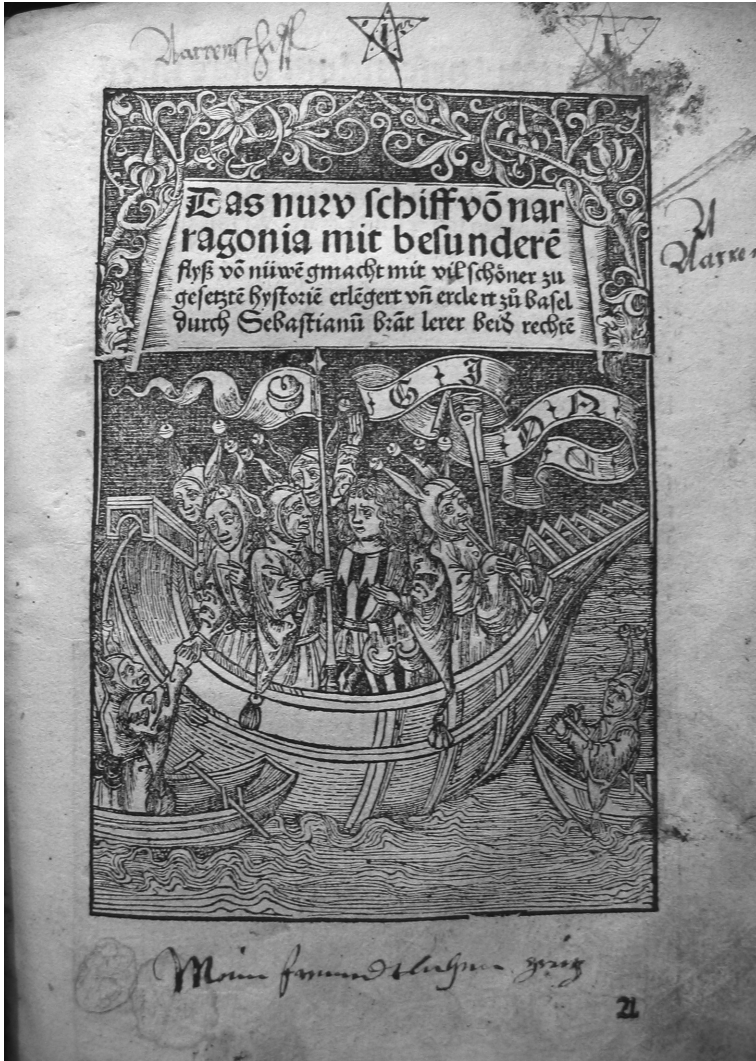 Narrenschiff
Das nuw schiff võ nar
ragonia mit besunderẽ
flyß võ nüwẽ gmacht mit vil schöner zu
gesetztẽ hystoriẽ erlẽgert vñ erclert zů basel
durch Sebastianũ brãt lerer beid rechtẽ
G I
N R
O
Mein
21